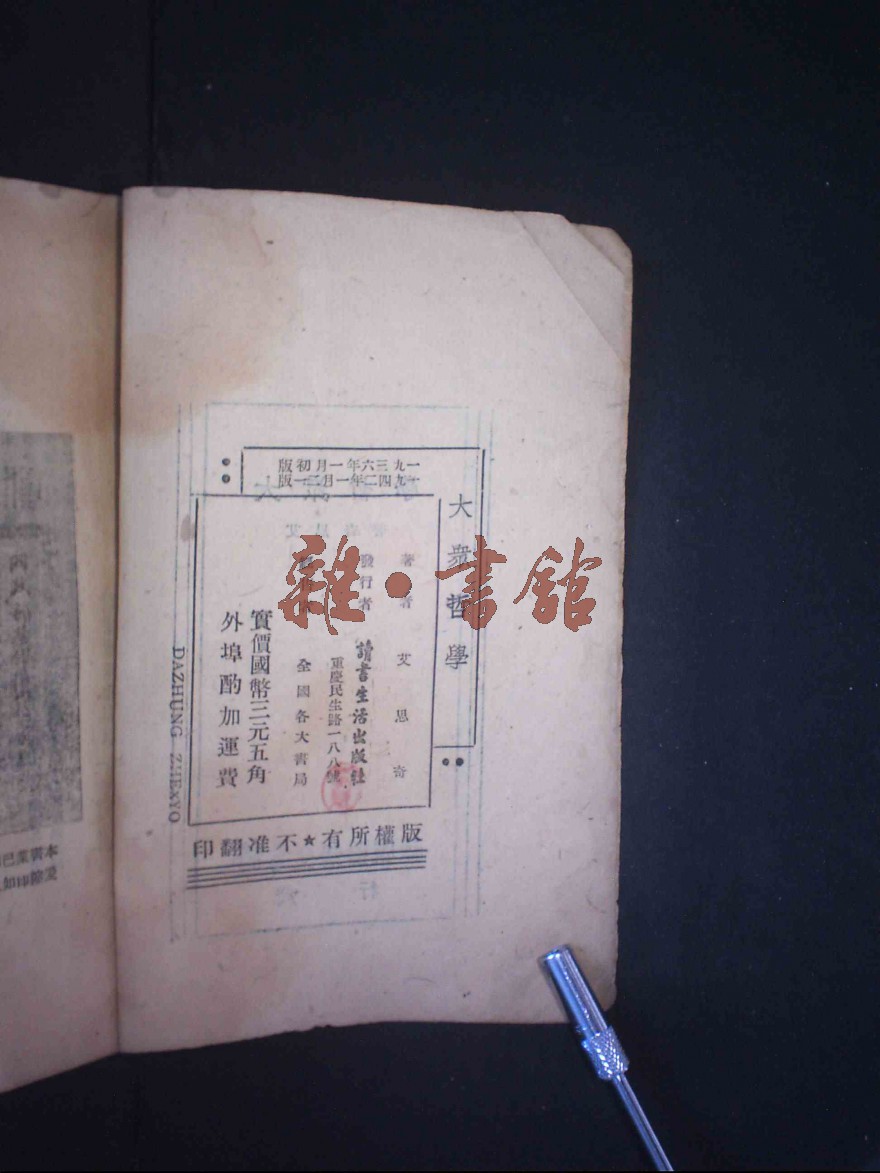 大衆哲學
一九三六年一月初版
一九四二年一月二一版
著者 艾思奇
發行者 讀書生活出版社
重慶民生路一八八號
全國各大書局
實價國幣三元五角
外埠酌加運費
版權所有★不准翻印
DAZHUNG ZHEXYO
雜·書館
本書業已